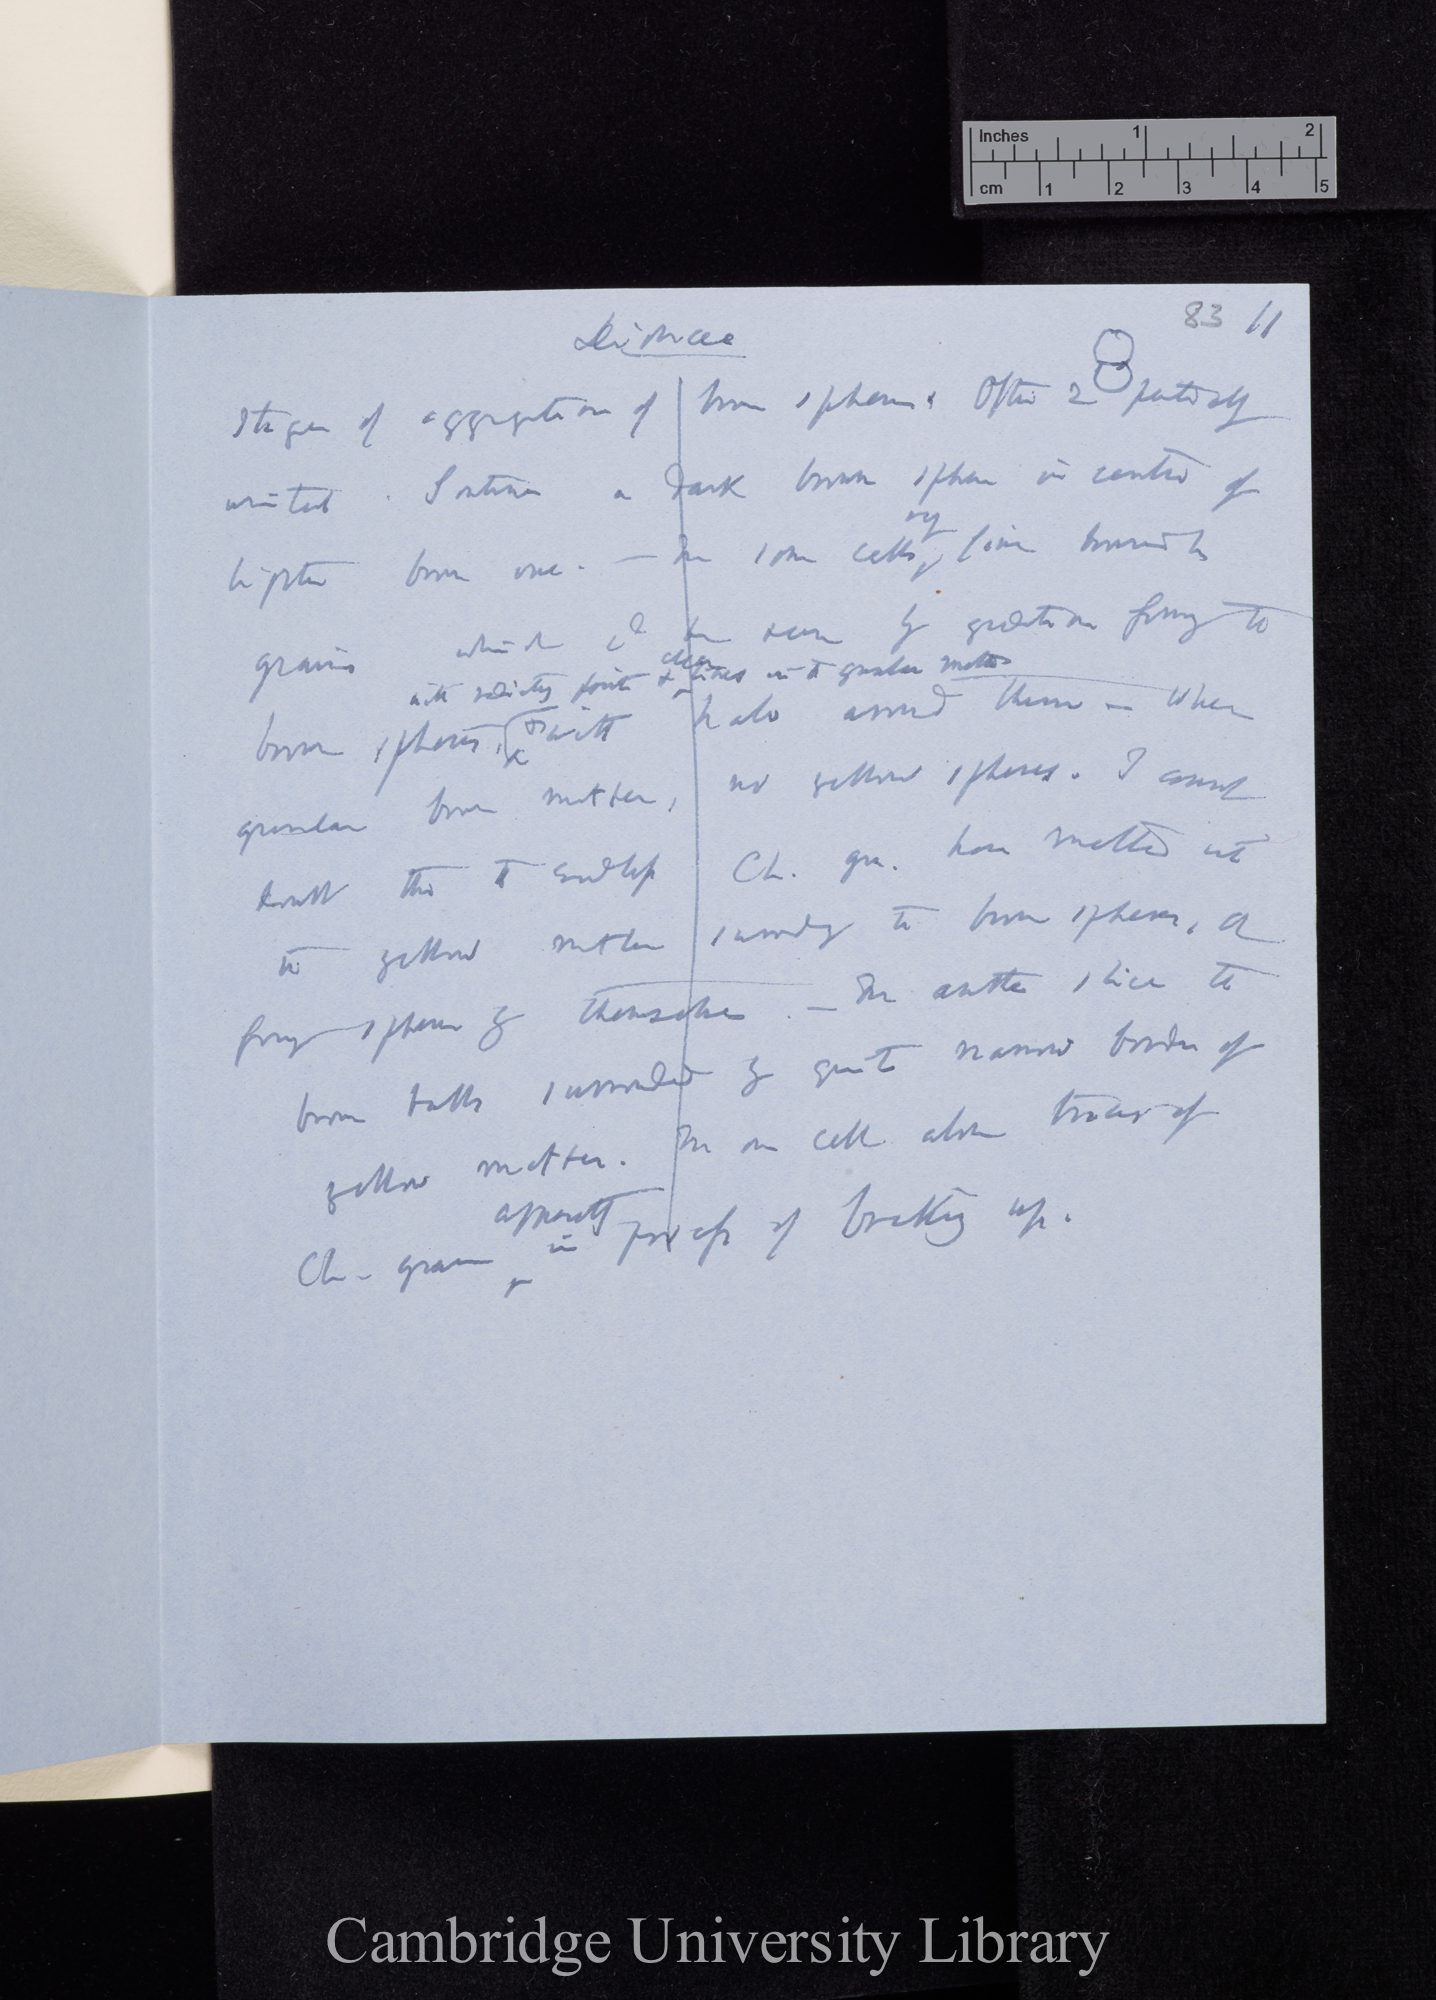 Inches 1 2
cm 1 2 3 4 5
83 11
Dionaea
Stages of aggregation of brown spheres. Often 2 partially
united. Sometimes a dark brown sphere in centre of
lighter brown one. — In some cells, very fine brownish
grains which cd be seen by gradation forming the
with radiating points & clear lines in the granular matter
brown spheres, (or with halo around them — When
granular brown matter, no yellow spheres. I cannot
doubt tht the Ch. gr. have melted into
the yellow matter surrounding the brown spheres, or
forming spheres by themselves. — In another slice the
brown balls surrounded by quite narrow border of
yellow matter. In one cell alone traces of
apparently
Ch. grains in process of breaking up.
Cambridge University Library